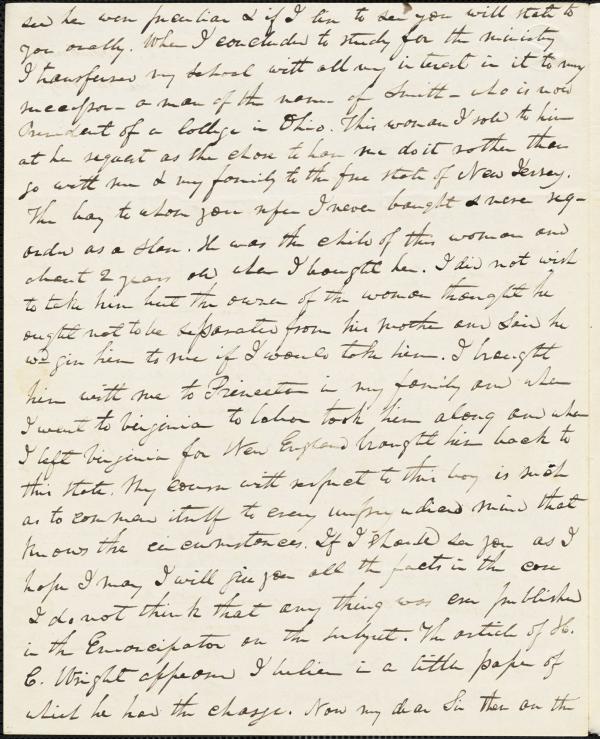 see her were peculiar & if I live to see you will state to
you orally. When I concluded to study for the ministry
I transferred my school with all my interest in it to my
successor - a man of the name of Smith - who is now
President of a College in Ohio. This woman I sold to him
at her request as she chose to have me do it rather than
go with me & my family to the free state of New Jersey.
The boy to whom you refer I never bought & never reg-
arded as a slave. He was the child of this woman and
about 2 years old when I bought her. I did not wish
to take him but the owner of the woman thought he
ought not to be separated from his mother and said he
wd give him to me if I would take him. I brought
him with me to Princeton in my family and when
I went to Virginia to labor took him along and when
I left Virginia for New England brought him back to
this State. My course with respect to this boy is such
as to commend itself to every unprejudiced mind that
knows the circumstances. If I should see you as I
hope I may I will give you all the facts in the case
I do not think that any thing was ever published
in the Emancipator on the subject. The article of H.
C. Wright appeared I believe in a little paper of
which he had the charge. Now my dear Sir then on the